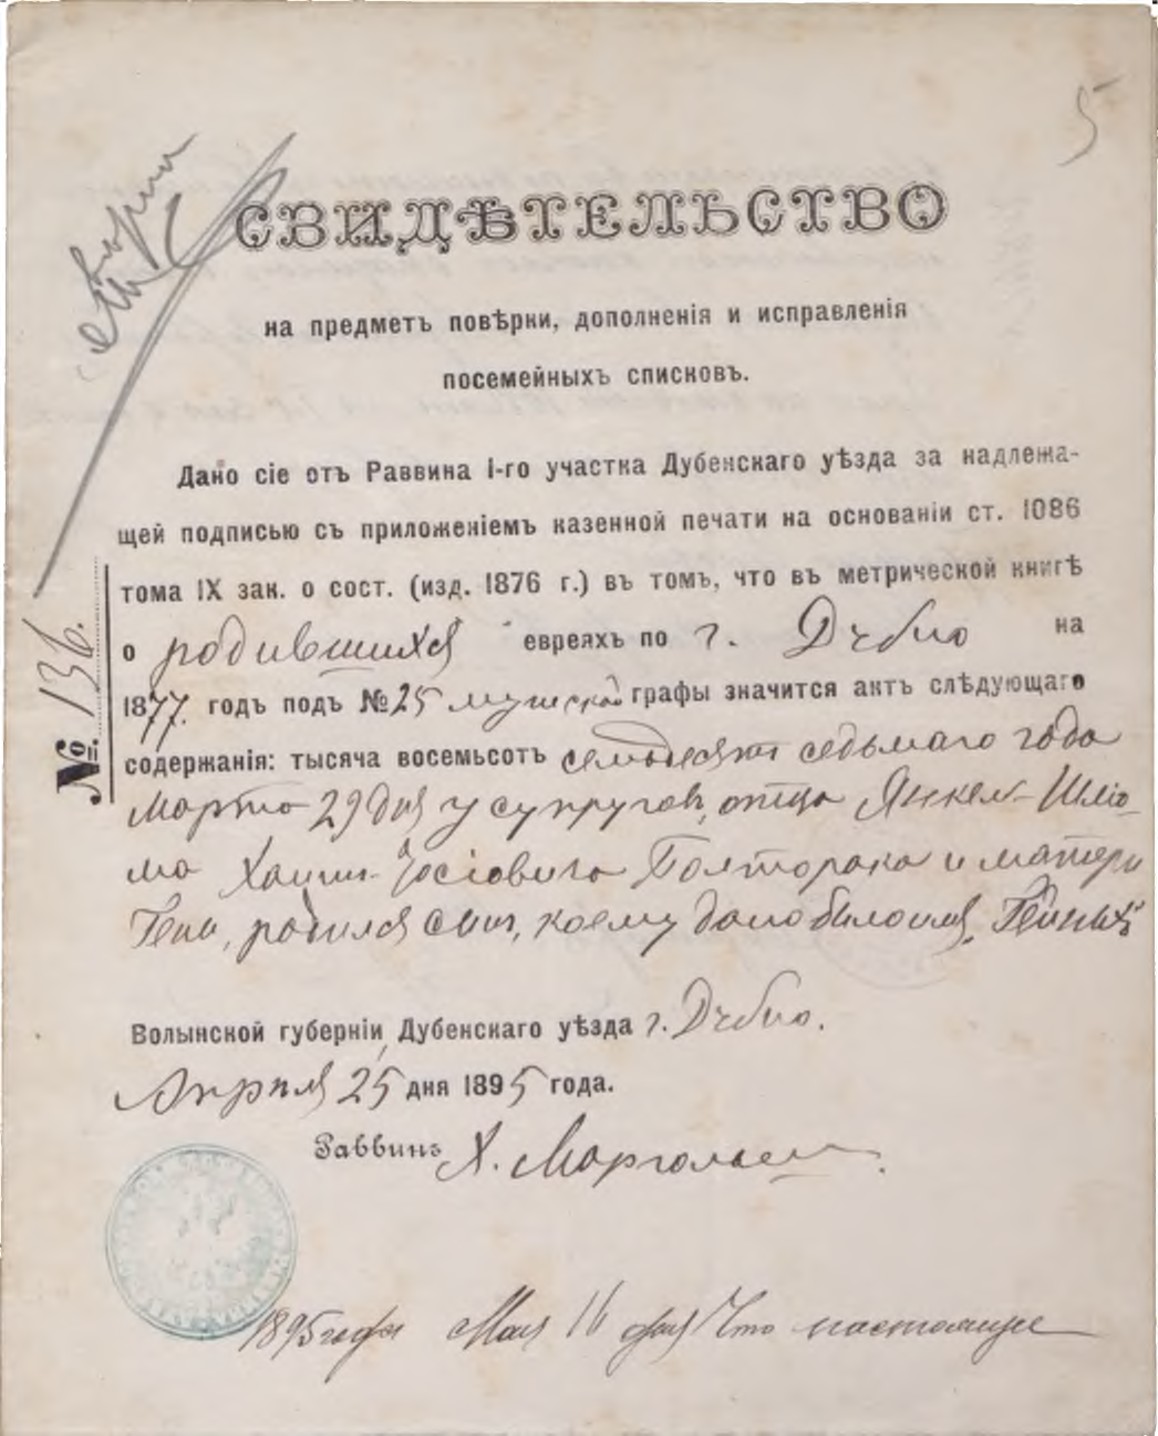 5
СВИДѢТЕЛЬСТВО
на предметъ повѣрки, дополненія и исправленія
посемейныхъ списковъ.
Дано сіе отъ Раввина I-го участка Дубенскаго уѣзда за надлежа-
щей подписью съ приложеніемъ казенной печати на основаніи ст. 1086
тома IX зак. о сост. (изд. 1876 г.) въ томъ, что въ метрической книгѣ
о родившихся евреяхъ по г. Дубно на
1877. годъ подъ №25 мужской графы значится актъ слѣдующаго
содержанія: тысяча восемьсотъ семьдесятъ седьмаго года
Марта 29 дня у супруговъ, отца Янкель-Шлio-
ма Хаим-Iосіовича Полторака и матери
Гени, родился сынъ, коему дано было имя,
№ 136.
Волынской губерніи Дубенскаго уѣзда г. Дубно.
Апреля 25 дня 1895 года.
Раввинъ Х. Маргольесъ
1895 года Мая 16 дня Что настоящее